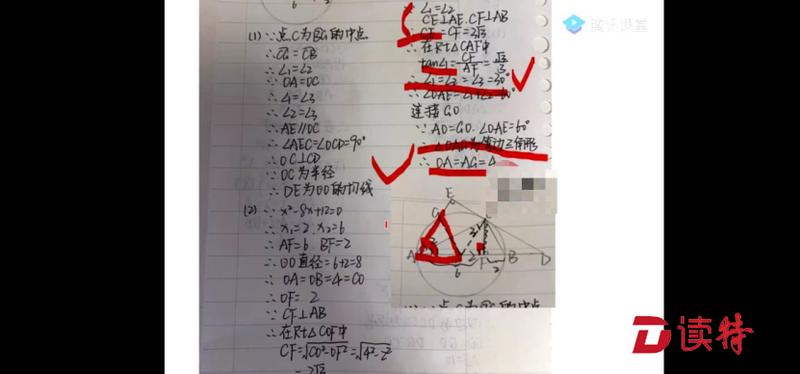 6
(1) ∵点C为BG的中点
∴CG=CB
∴∠1=∠2
∵OA=OC
∴∠1=∠3
∴∠2=∠3
∴AE∥OC
∴∠AEC=∠OCD=90°
∴OC⊥CD
∵OC为半径
∴DE为⊙O的切线
(2) ∵x²-8x+12=0
∴x₁=2 x₂=6
∴AF=6 BF=2
∴⊙O直径=6+2=8
∴OA=OB=4=CO
∴OF=2
∵CF⊥AB
∴在Rt△COF中
CF=√CO²-OF²=√4²-2²
=2√3
∵∠1=∠2
CE⊥AE.CF⊥AB
∴CE=CF=2√3
∴在Rt△CAF中
tan∠1=CF/AF=√3/3
∴∠1=∠2=∠3=30°
∴∠OAE=∠1+∠2=60°
连接GO
∵AO=GO.∠OAE=60°
∴△OAG为等边三角形
∴OA=AG=4
E
G
A
2
F
B
D
6
2
腾讯课堂
读特